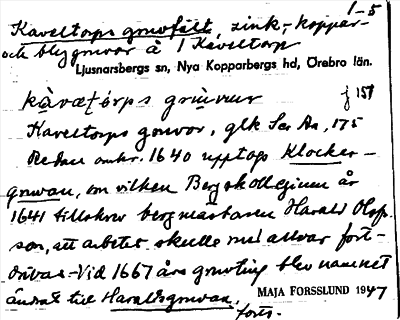 1-5
Kaveltorps gruvfält, zink-, koppar-
och blygruvor å 1 Kaveltorp
Ljusnarsbergs sn, Nya Kopparbergs hd, Örebro län.
kàvætórps grùvur
f 157
Kaveltorps gruvor, glk Ser Aa, 175
Redan omkr. 1640 upptogs Klocker-
gruvan, om vilken Bergskollegium år
1641 tillskrev bergmästaren Harald Olof-
son, att arbetet skulle med allvar fort-
drivas - Vid 1667 års gruvting blev namnet
ändrat till Haraldsgruvan.
MAJA FORSSLUND 1947
forts.